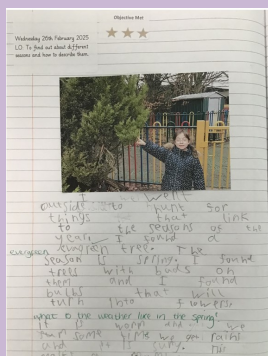 Objective Met
Wednesday 26th February 2025
LO: To find out about different
seasons and how to describe them.
went
outside to hunt for
things that link
to the seasons of the
year. I found a
evergreen tree. The
season is spring. I found
trees with buds on
them and I found
bulbs that will
turn into flowers.
what is the weather like in the spring?
it is warm and we
some time we get rains
and it is